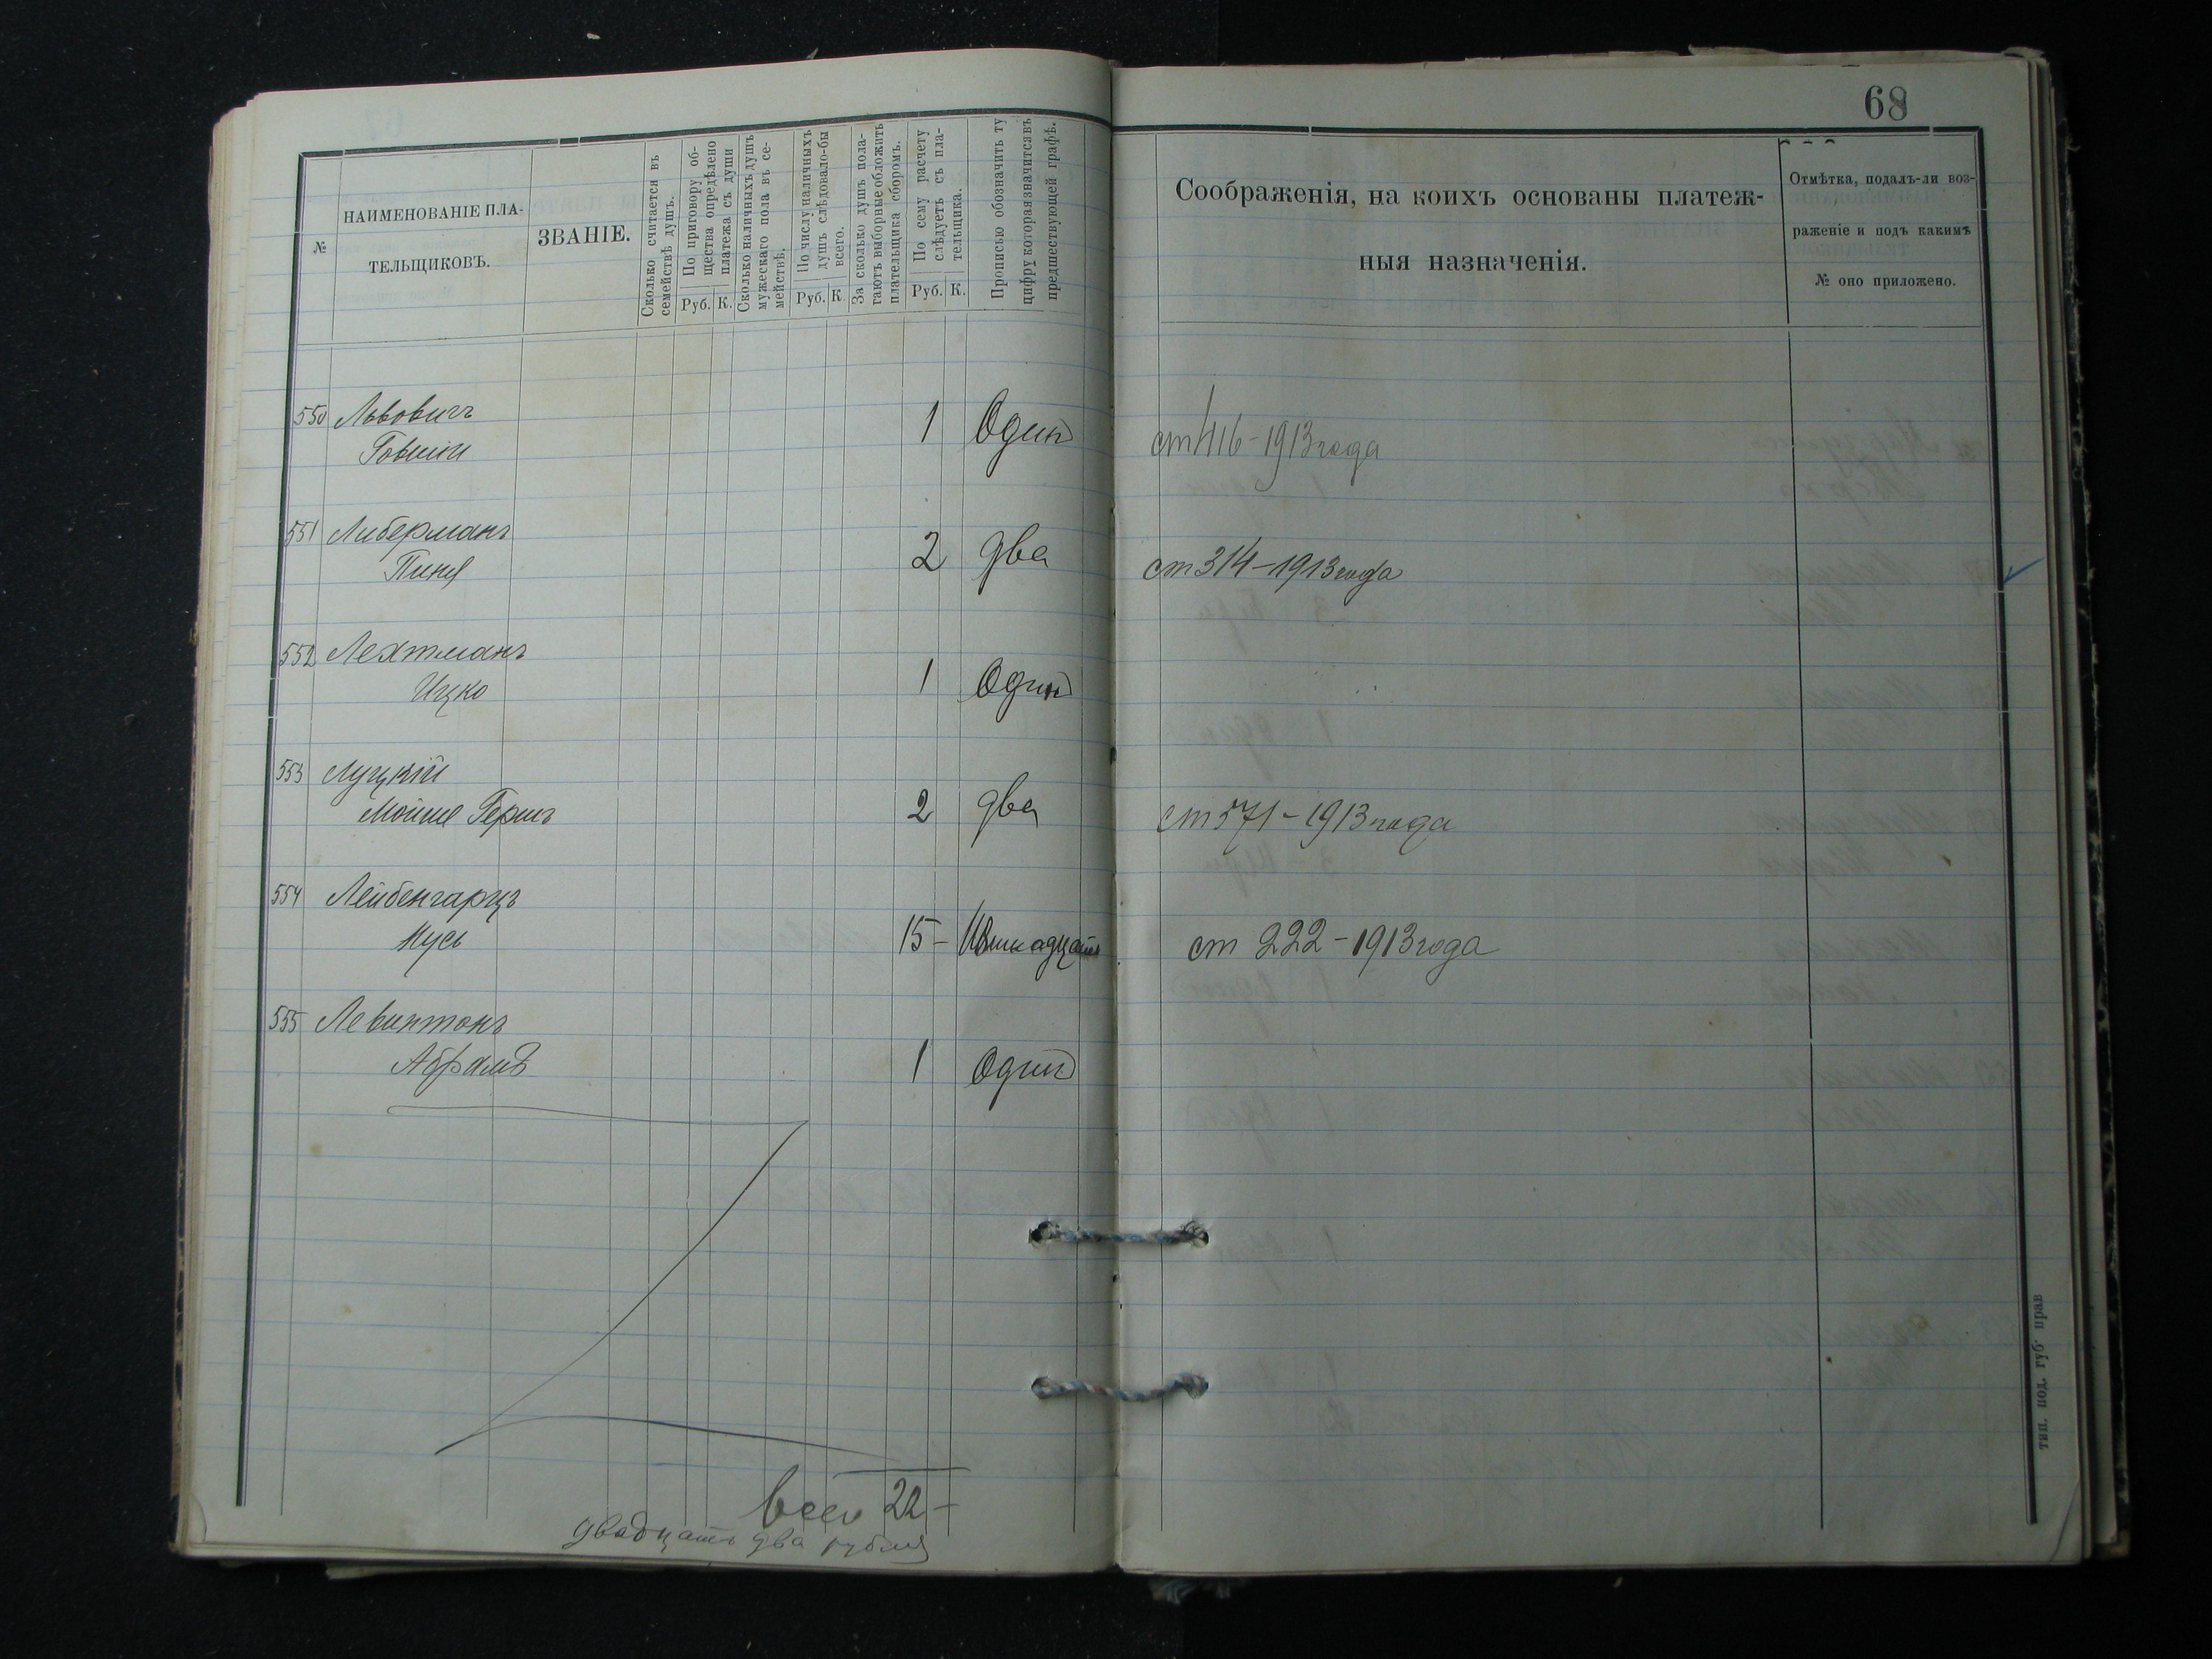 68
№
НАИМЕНОВАНІЕ ПЛА-
ТЕЛЬЩИКОВЪ.
ЗВАНІЕ.
Сколько считается въ
семействѣ душъ.
По приговору об-
щества опредѣлено
платежа съ души
Руб. К.
Сколько наличныхъ душъ
мужескаго пола въ се-
мействѣ.
По числу наличныхъ
душъ слѣдовало-бы
всего.
Руб. К.
За сколько душъ пола-
гаютъ выборные обложить
плательщика сборомъ.
По сему расчету
слѣдуетъ съ пла-
тельщика.
Руб. К.
Прописью обозначить ту
цифру которая значится въ
предшествующей графѣ.
Соображенія, на коихъ основаны платеж-
ныя назначенія.
Отмѣтка, подалъ-ли воз-
раженіе и подъ какимъ
№ оно приложено.
550 Львовичъ
Говшии 1 Один ст 416-1913 года
551 Либерманъ
Пиня 2 два ст 314-1913 года
552 Лехтманъ
Ицко 1 Один
553 Луцкій
Мойше Гершъ 2 два ст 571-1913 года
554 Лейбенгарцъ
Нусь 15- ст 222-1913 года
555 Левинтонъ
Абрамъ 1 Один
всего 22-
двадцать два рубля
тип. под. губ. прав